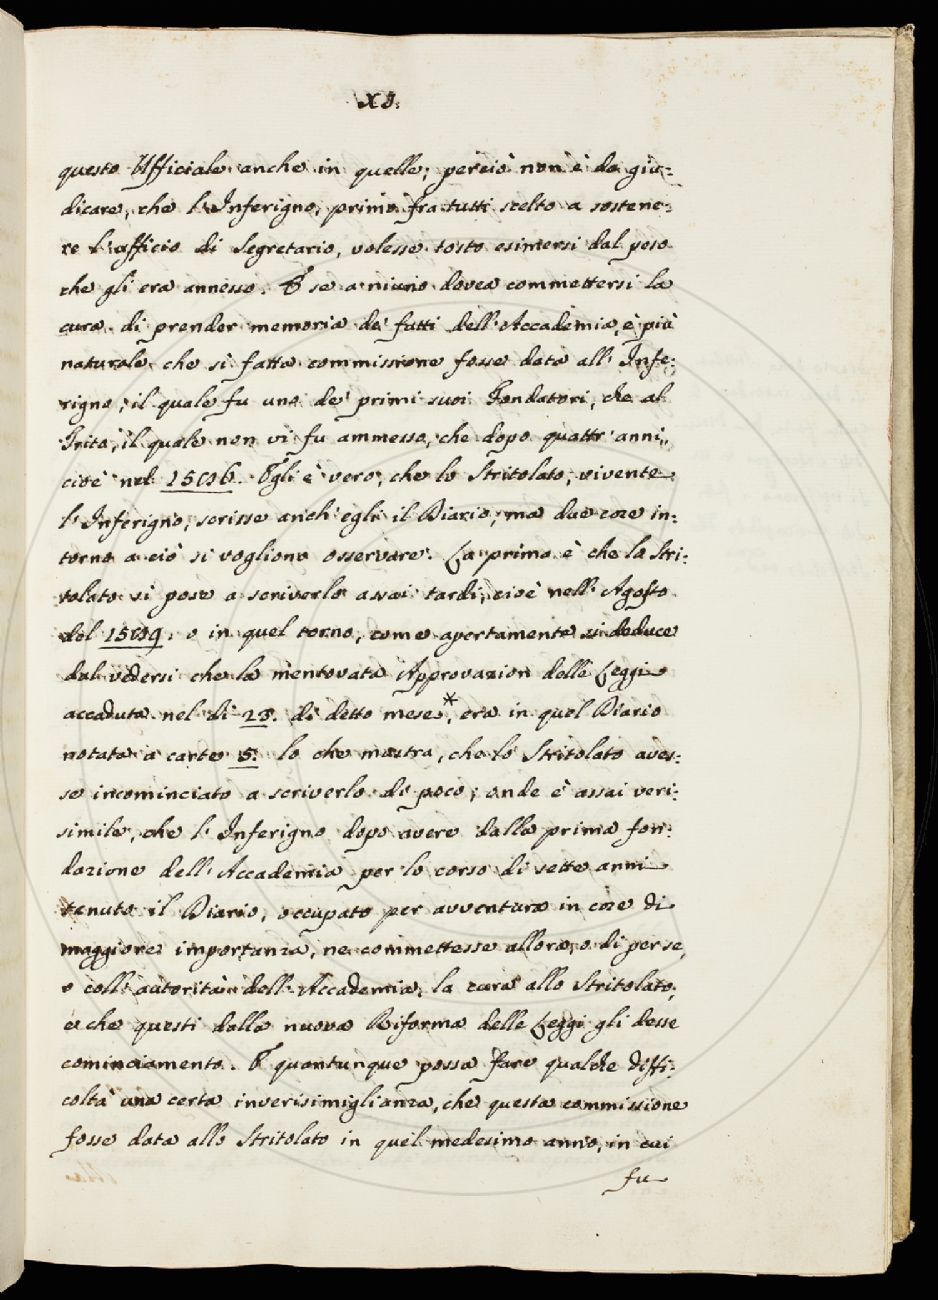 XI.
questo Ufficiale anche in quelle; perciò non è da giu-
dicare, che l'Inferigno, primo fra tutti scelto a sostene-
re l'officio di Segretario, volesse tosto esimersi dal peso
che gli era annesso. E se a niuno dovea commettersi la
cura di prender memoria de' fatti dell'Accademia, è più
naturale che sì fatta commissione fosse data all'Infe-
rigno, il quale fu uno de' primi suoi Fondatori, che al
Trito, il quale non vi fu ammesso, che dopo quattr'anni,
cioè nel 1586. Egli è vero, che lo Stritolato, vivente
l'Inferigno, scrisse anch'egli il Diario; ma due cose in-
torno a ciò si vogliono osservare. La prima è che lo Stri-
tolato si pose a scriverlo assai tardi, cioè nell'Agosto
del 1589. o in quel torno, come apertamente si deduce
dal vedersi che la mentovata Approvazion delle Leggi
accaduta nel dì 23. di detto mese*, era in quel Diario
notata a carte 5. lo che mostra, che lo Stritolato aves-
se incominciato a scriverlo di poco; onde è assai veri-
simile, che l'Inferigno dopo avere dalla prima fon-
dazione dell'Accademia per lo corso di sette anni
tenuto il Diario, occupato per avventura in cose di
maggiore importanza, ne commettesse allora, o di per se,
o coll'autorità dell'Accademia, la cura allo Stritolato,
e che questi dalla nuova Riforma delle Leggi gli desse
cominciamento. E quantunque possa fare qualche diffi-
coltà una certa inverisimiglianza, che questa commissione
fosse data allo Stritolato in quel medesimo anno, in cui
fu